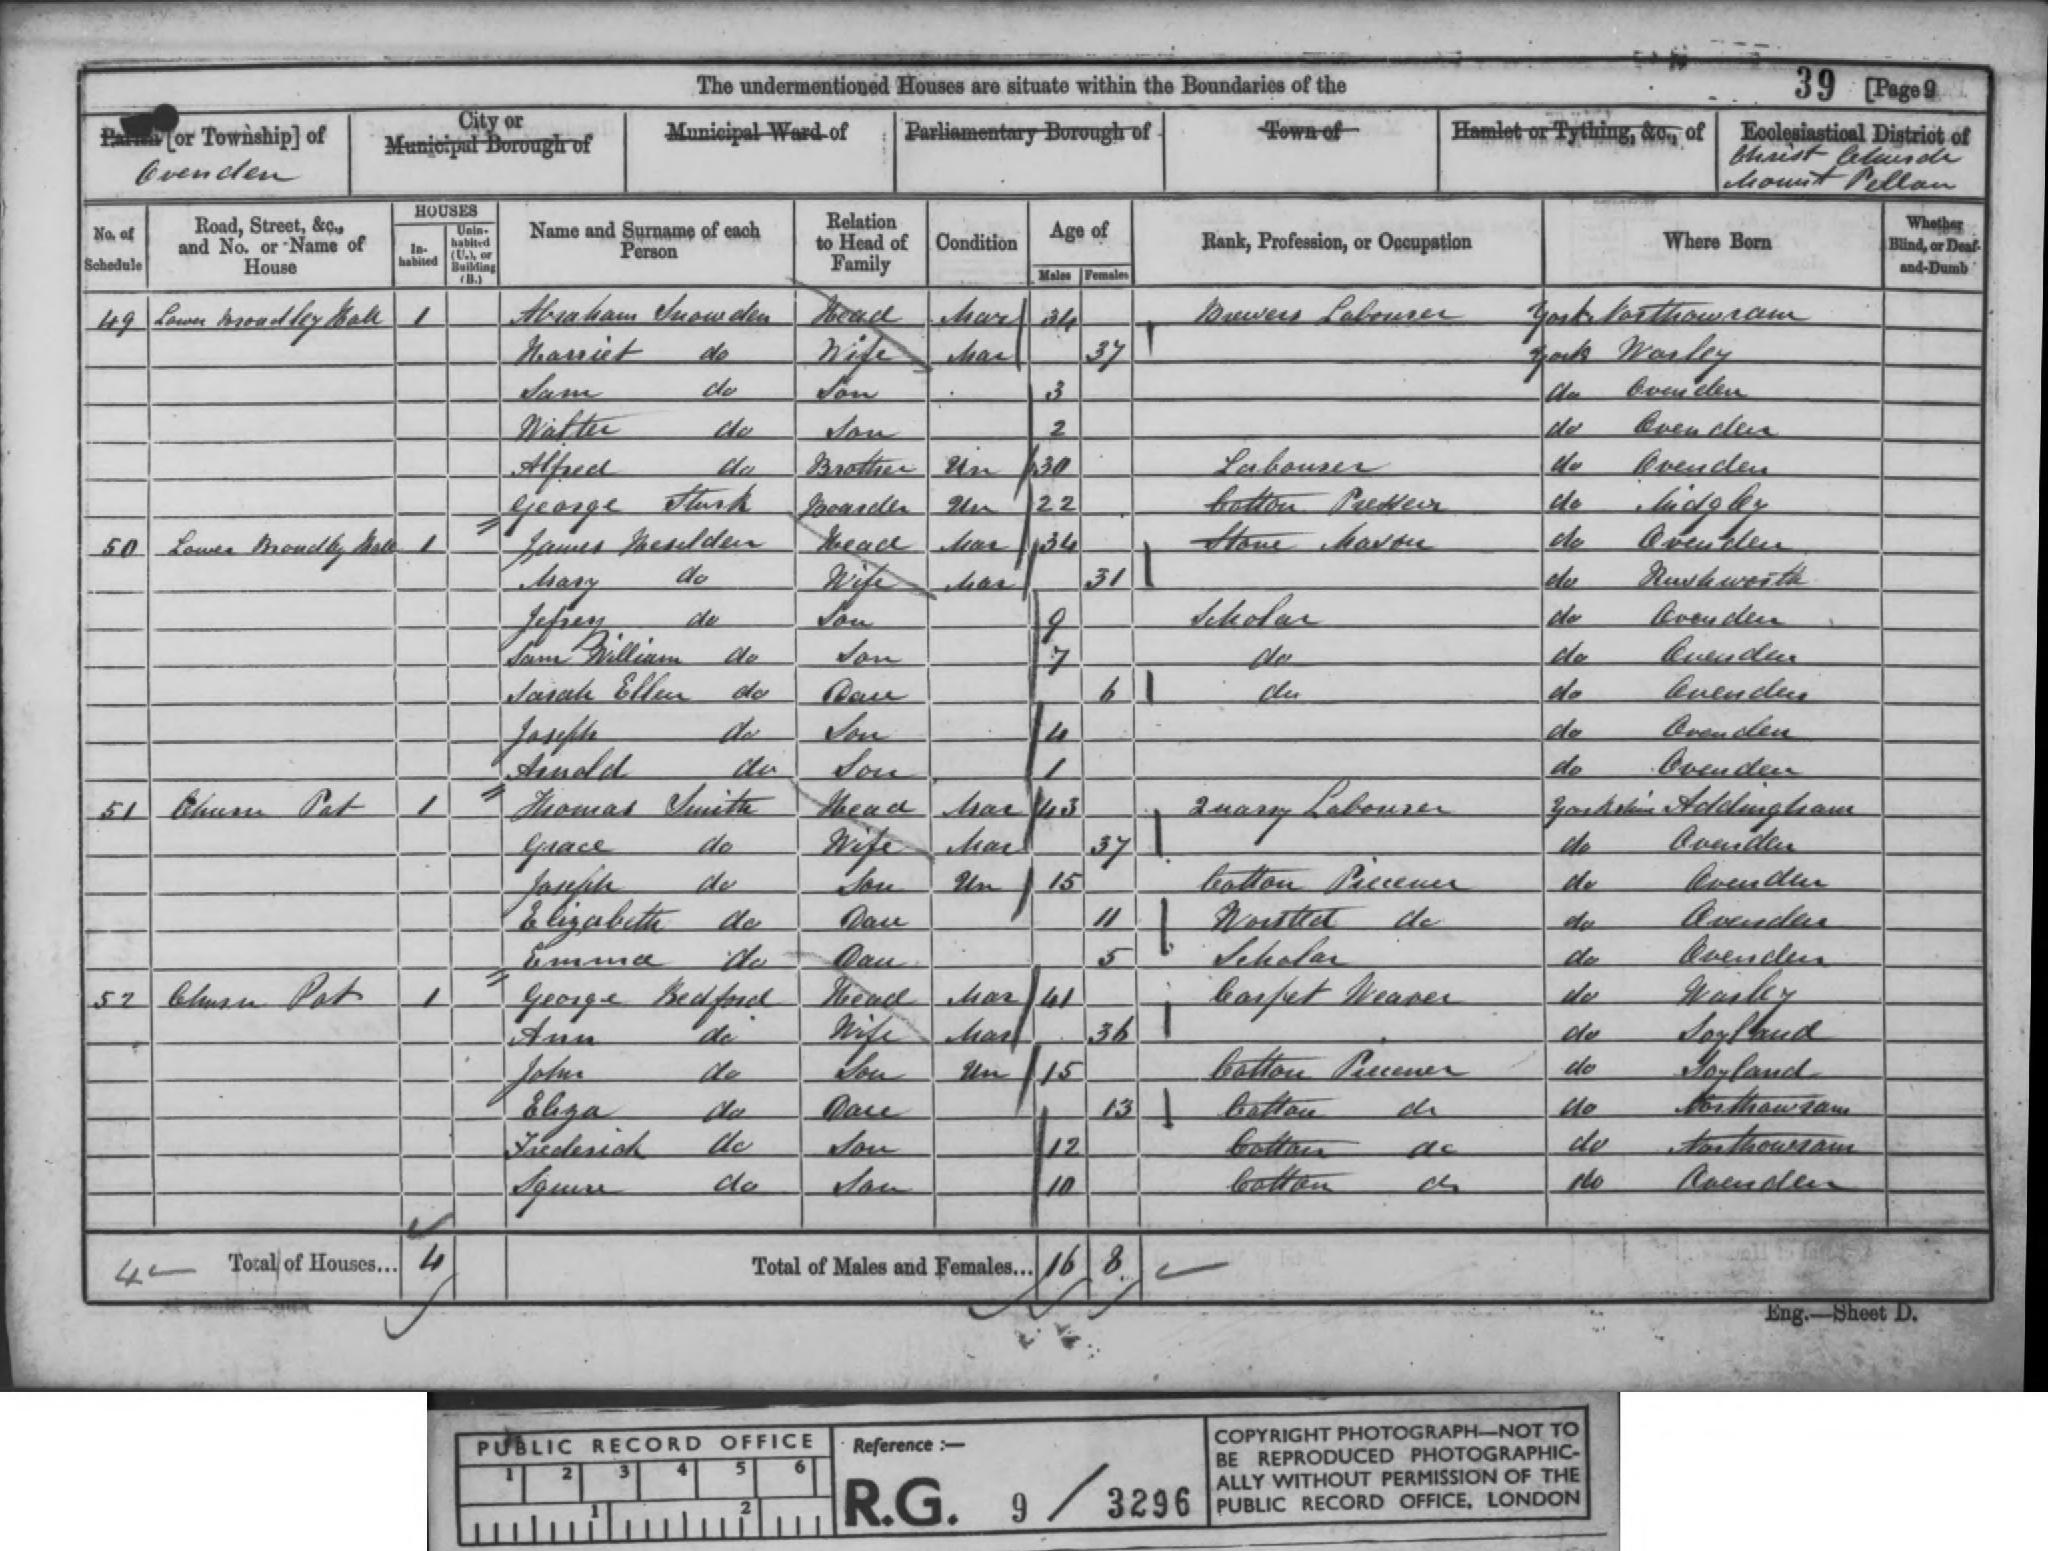 The undermentioned Houses are situate within the Boundaries of the 39 [Page 9
Parish [or Township] of City or Municipal Borough of Municipal Ward of Parliamentary Borough of Town of Hamlet or Tything, &c., of Ecclesiastical District of
Ovenden Christ Church
Mount Pellon
No. of Schedule Road, Street, &c., and No. or Name of House HOUSES In-habited Unin-habited (U.), or Building (B.) Name and Surname of each Person Relation to Head of Family Condition Age of Males Females Rank, Profession, or Occupation Where Born Whether Blind, or Deaf-and-Dumb
49 Lower Broadley Hall 1 Abraham Snowden Head Mar 34 Brewers Labourer York Northowram
Harriet do Wife Mar 37 York Warley
Sam do Son 3 do Ovenden
Walter do Son 2 do Ovenden
Alfred do Brother Un 30 Labourer do Ovenden
George Sturk Boarder Un 22 Cotton do Midgley
50 Lower Broadley Hall 1 James Heselden Head Mar 34 Stone Mason do Ovenden
Mary do Wife Mar 31 do Rushworth
Jefrey do Son 9 Scholar do Ovenden
Sam William do Son 7 do do Ovenden
Sarah Ellen do Dau 6 do do Ovenden
Joseph do Son 4 do Ovenden
Arnold do Son 1 do Ovenden
51 Churn Pot 1 Thomas Smith Head Mar 43 Quarry Labourer Yorkshire Addingham
Grace do Wife Mar 37 do Ovenden
Joseph do Son Un 15 Cotton Piecener do Ovenden
Elizabeth do Dau 11 Worsted do do Ovenden
Emma do Dau 5 Scholar do Ovenden
52 Churn Pot 1 George Bedford Head Mar 41 Carpet Weaver do Warley
Ann do Wife Mar 36 do Soyland
John do Son Un 15 Cotton Piecener do Soyland
Eliza do Dau 13 Cotton do do Northowram
Frederick do Son 12 Cotton do do Northowram
Squire do Son 10 Cotton do do Ovenden
4 Total of Houses... 4 Total of Males and Females... 16 8
Eng.—Sheet D.
PUBLIC RECORD OFFICE
1 2 3 4 5 6
1 2
Reference :—
R.G. 9 / 3296
COPYRIGHT PHOTOGRAPH—NOT TO
BE REPRODUCED PHOTOGRAPHIC-
ALLY WITHOUT PERMISSION OF THE
PUBLIC RECORD OFFICE, LONDON